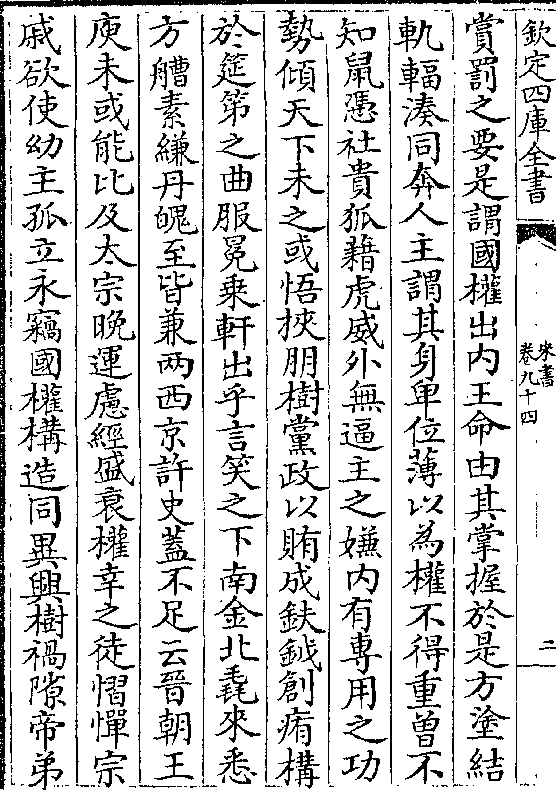 欽定四庫全書
宋書
卷九十四
二
賞罰之要是謂國權出内王命由其掌握於是方塗結
軌輻湊同奔人主謂其身卑位薄以為權不得重曾不
知鼠憑社貴狐藉虎威外無逼主之嫌内有專用之功
勢傾天下未之或悟挾朋樹黨政以賄成鈇鉞創痏構
於筵笫之曲服冕乗軒出乎言笑之下南金北毳來悉
方艚素縑丹魄至皆兼两西京許史蓋不足云晉朝王
庾未或能比及太宗晚運慮經盛衰權幸之徒慴憚宗
戚欲使幼主孤立永竊國權構造同異興樹禍隙帝弟